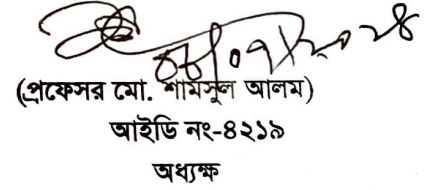 (প্রফেসর মো. শামসুল আলম)
আইডি নং-৪২১৯
অধ্যক্ষ